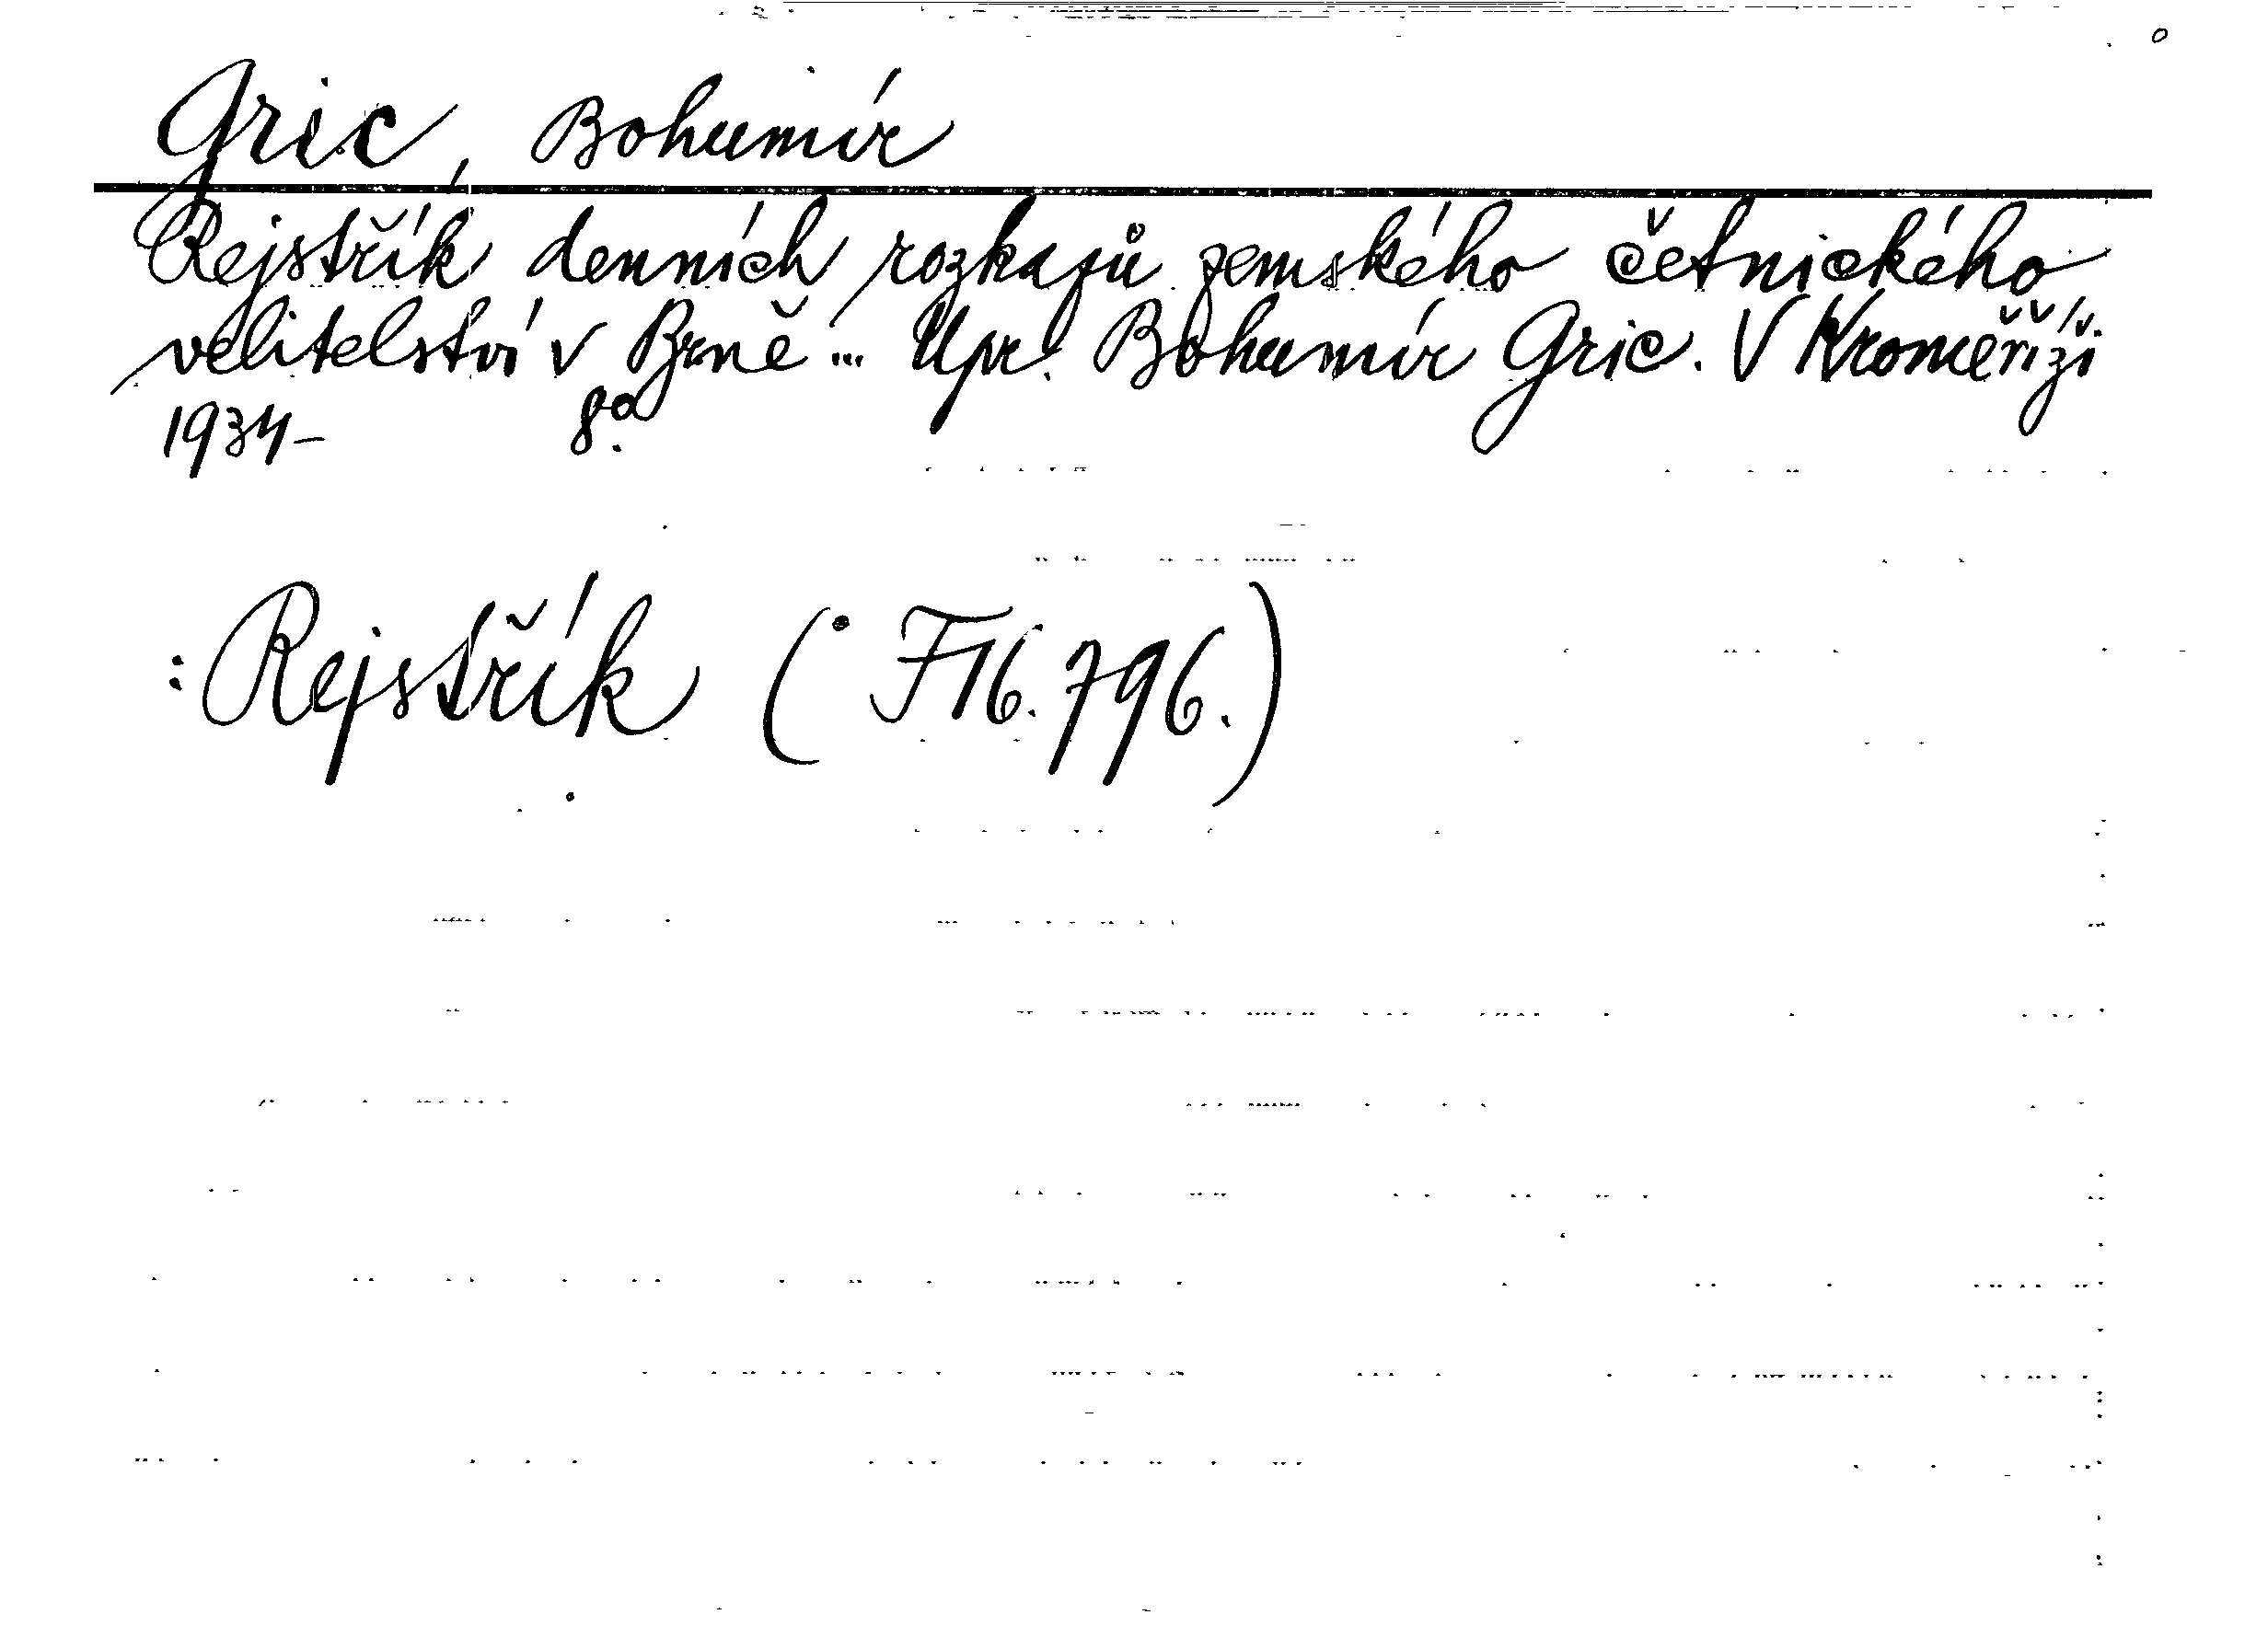 Gric, Bohumír
Rejstřík denních rozkazů zemského četnického
velitelství v Brně ... Upr. Bohumír Gric. V Kroměříži
1934- 8°.
: Rejstřík (° F16.796.)